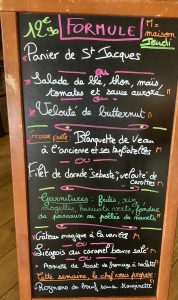 12€90 FORMULE M = maison
Jeudi
Panier de St Jacques
ou
Salade de blé, thon, maïs
tomates et sauce aurore
ou
Velouté de butternut
Blanquette de Veau
à l'ancienne et ses
ou
Filet de dorade Sébaste, velouté de
carottes
Garnitures : frites, riz,
haricots verts, fondue
de poireaux ou poêlée de navets
Gâteau magique à la vanille
ou
Liégeois au caramel beurre salé
ou
Assiette de fromage
Cette semaine, le chef vous propose
Rognons de boeuf sauce